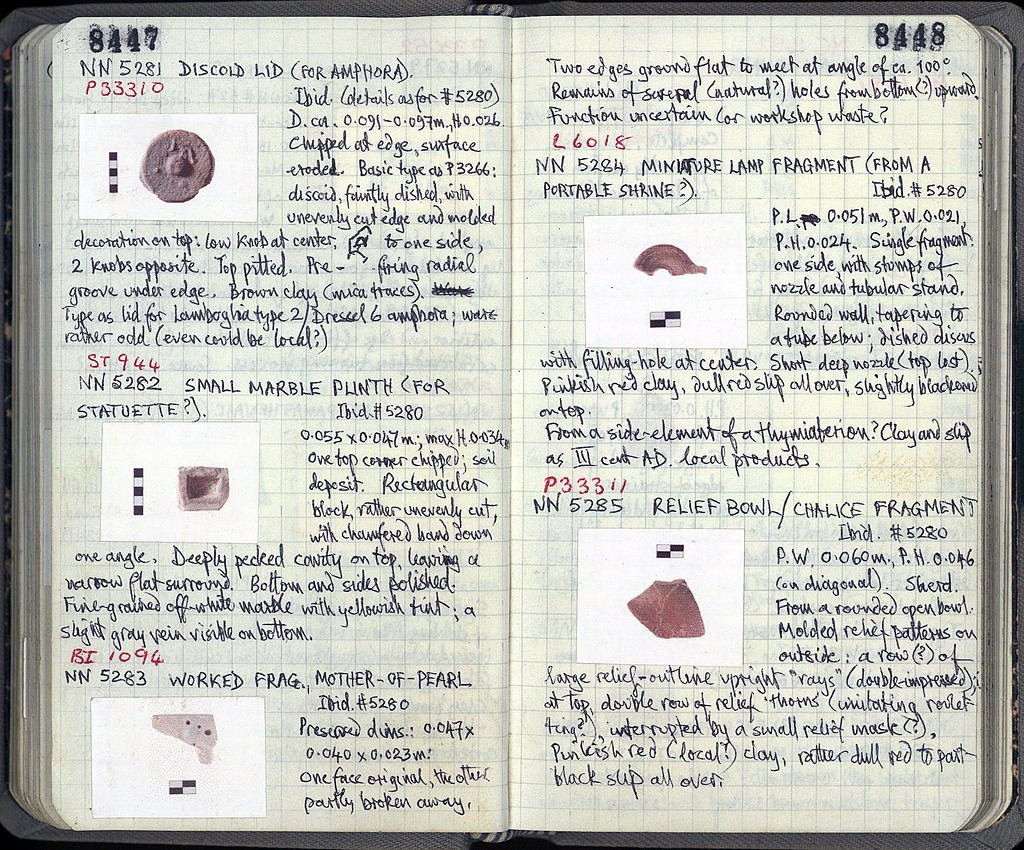 8447
NN 5281 DISCOID LID (FOR AMPHORA).
P33310
Ibid. (details as for #5280)
D. ca. 0.091-0.097m, H 0.026.
Chipped at edge, surface
eroded. Basic type as P3266:
discoid, faintly dished, with
unevenly cut edge and molded
decoration on top: low knob at center, to one side,
2 knobs opposite. Top pitted. Pre-firing radial
groove under edge. Brown clay (mica traces).
Type as lid for Lamboglia type 2/Dressel 6 amphora; ware
rather odd (even could be local?)
ST 944
NN 5282 SMALL MARBLE PLINTH (FOR
STATUETTE?).
Ibid. #5280
0.055 x 0.047m; max H. 0.034m
One top corner chipped; soil
deposit. Rectangular
block, rather unevenly cut,
with chamfered band down
one angle. Deeply pecked cavity on top, leaving a
narrow flat surround. Bottom and sides polished.
Fine-grained off-white marble with yellowish tint; a
slight gray vein visible on bottom.
BI 1094
NN 5283 WORKED FRAG., MOTHER-OF-PEARL
Ibid. #5280
Preserved dims.: 0.047x
0.040 x 0.023m.
One face original, the other
partly broken away.
8448
Two edges ground flat to meet at angle of ca. 100°
Remains of several (natural?) holes from bottom(?) upward.
Function uncertain (or workshop waste?
L 6018
NN 5284 MINIATURE LAMP FRAGMENT (FROM A
PORTABLE SHRINE?).
Ibid. #5280
P.L. 0.051m, P.W. 0.021,
P.H. 0.024. Single fragment:
one side, with stumps of
nozzle and tubular stand.
Rounded wall, tapering to
a tube below; dished discus
with filling-hole at center. Short deep nozzle (top lost).
Pinkish red clay, dull red slip all over, slightly blackened
on top.
From a side-element of a thymiaterion? Clay and slip
as III cent AD. local products.
P33311
NN 5285 RELIEF BOWL/CHALICE FRAGMENT
Ibid. #5280
P.W. 0.060m, P.H. 0.046
(on diagonal). Sherd.
From a rounded open bowl.
Molded relief patterns on
outside: a row(?) of
large relief-outline upright "rays" (double-impressed);
at top, double row of relief "thorns" (imitating roulet-
ting?), interrupted by a small relief mask(?).
Pinkish red (local?) clay, rather dull red to part-
black slip all over.